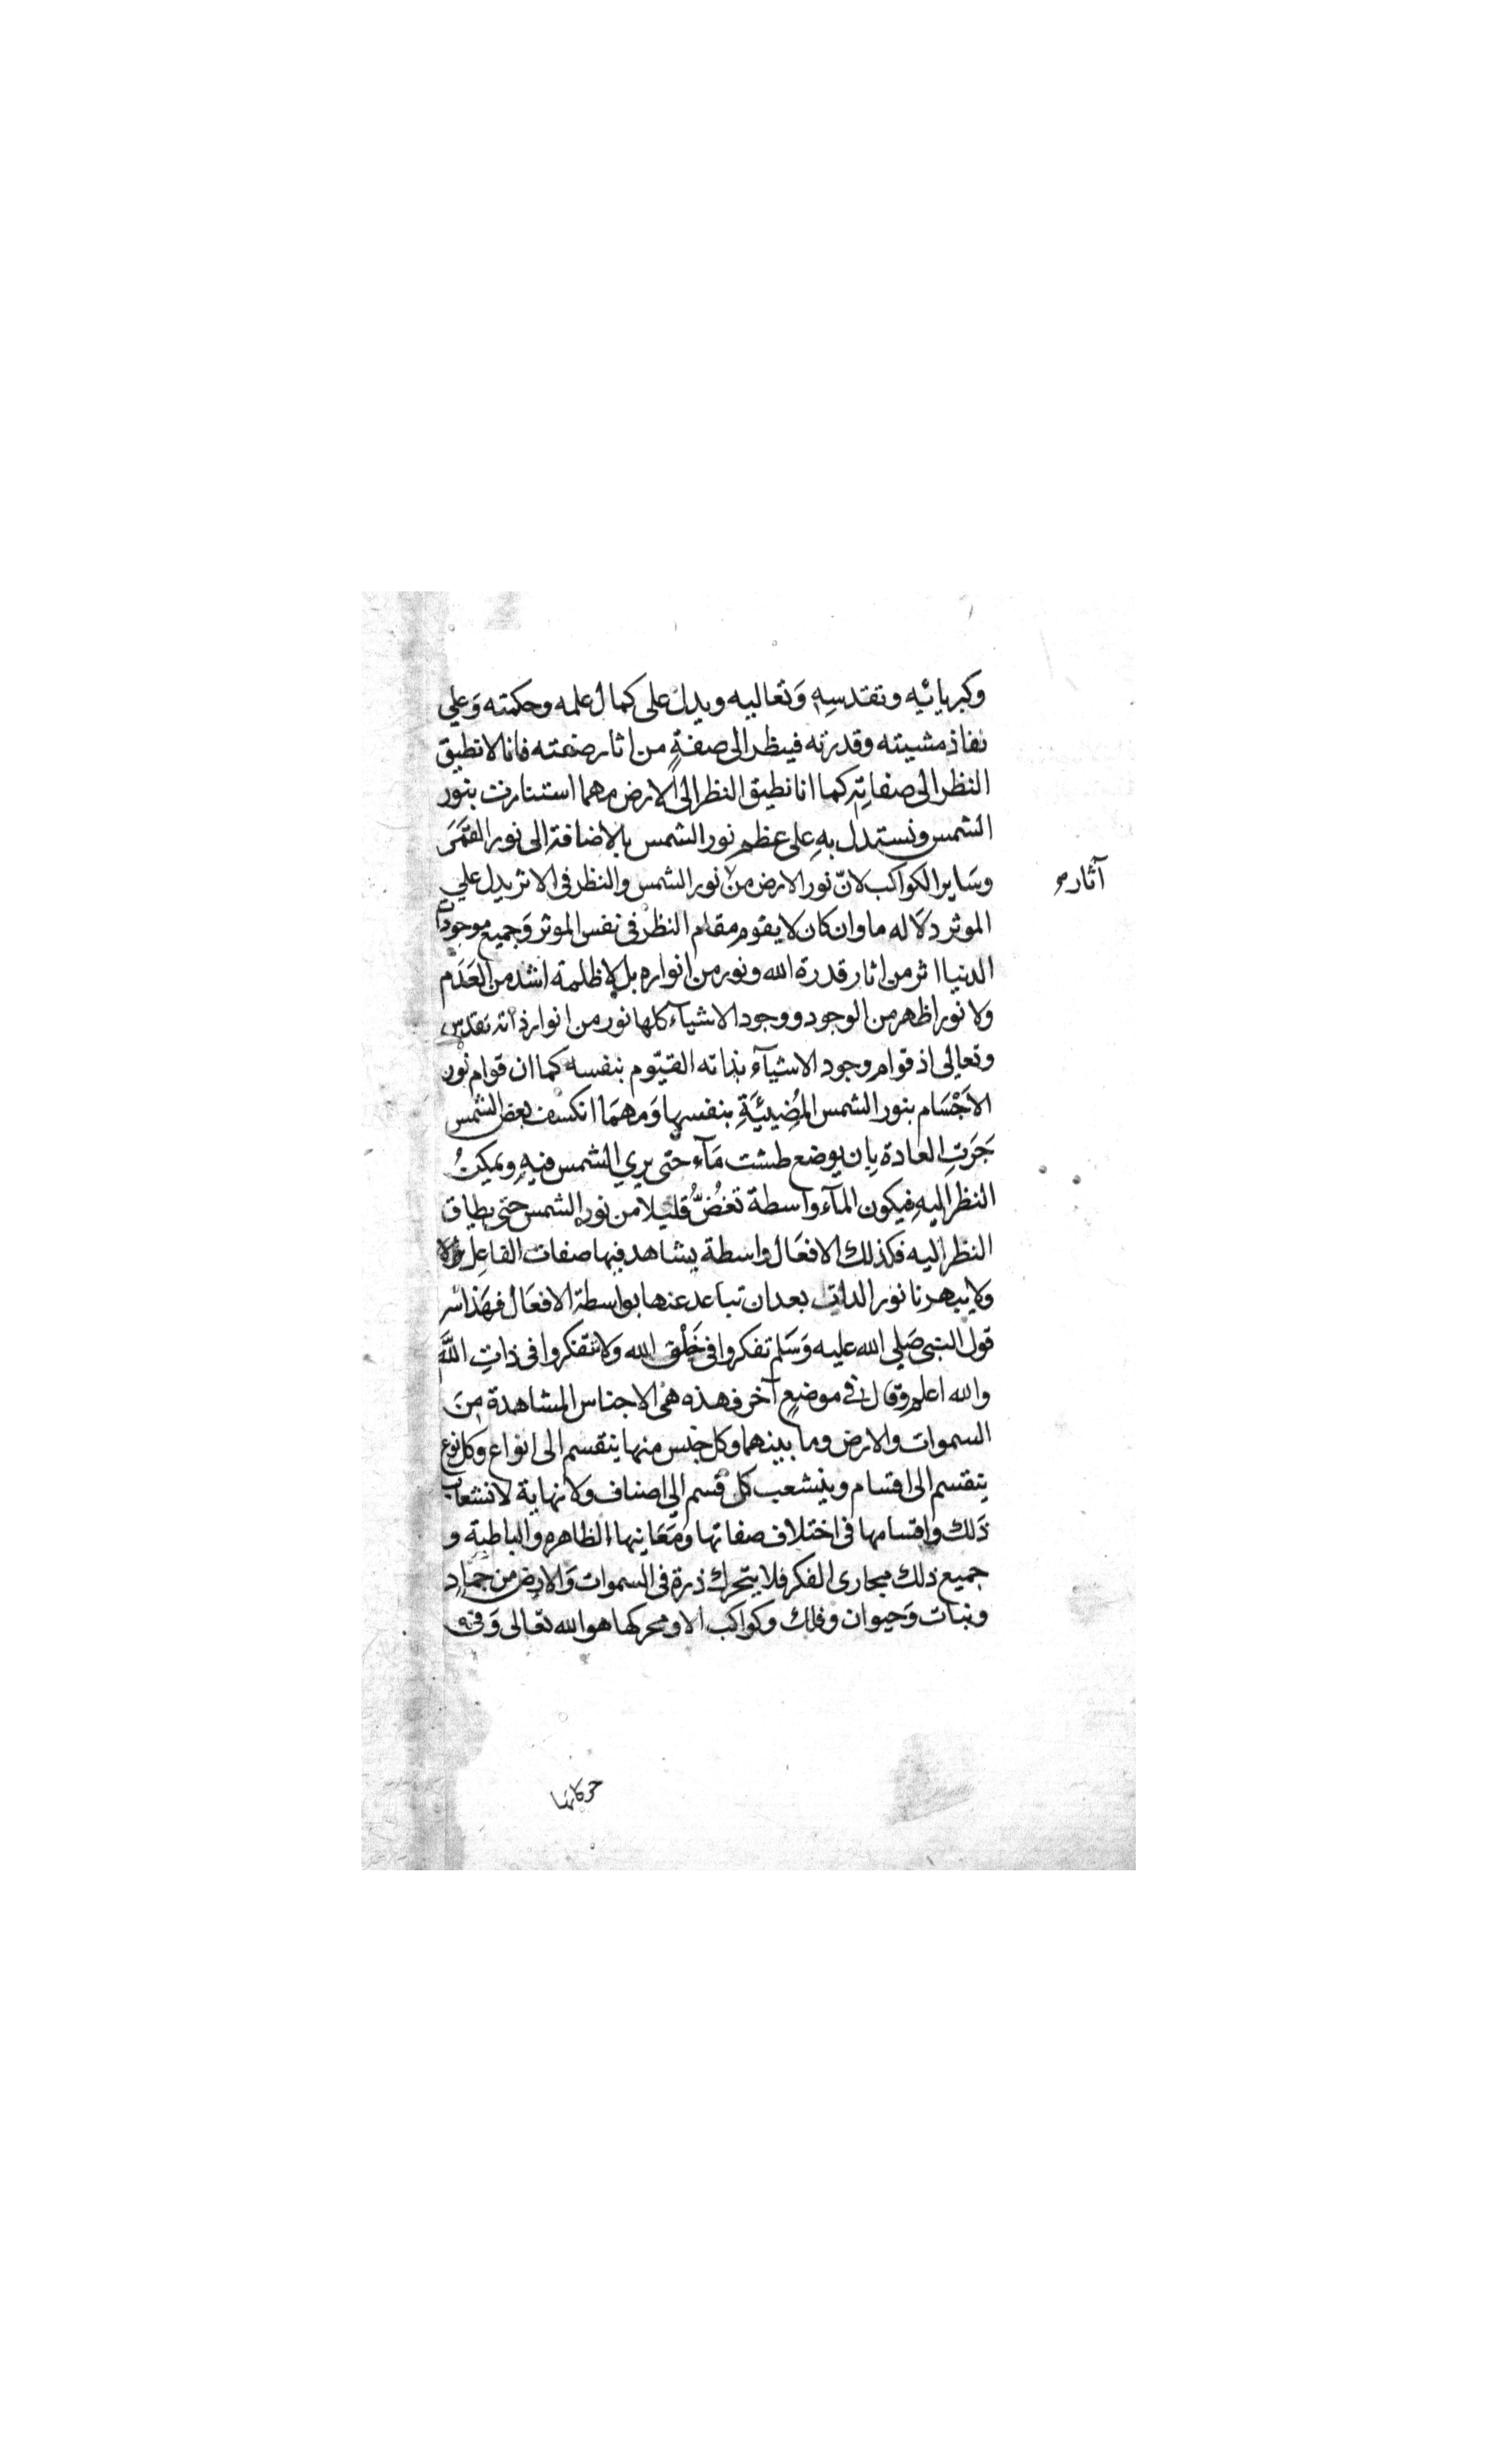 وكبريائيه وتقدسه وتعاليه ويدل على كمال علمه وحكمته وعلي
نفاذ مشيته وقدرته فينظر الى صفة من اثار صنعته فانا لا نطيق
النظر الى صفاته كما انا نطيق النظر الى الارض مهما استنارت بنور
الشمس ونستدل به على عظم نور الشمس بالاضافة الى نور القمر
وساير الكواكب لان نور الارض من نور الشمس والنظر فى الاثر يدل علي
آثار
الموثر دلاله ما وان كان لا يقوم مقام النظر فى نفس الموثر وجميع موجودات
الدنيا اثر من اثار قدرة الله ونور من انواره بل لا ظلمة اشد من العدم
ولا نور اظهر من الوجود ووجود الاشيآء كلها نور من انوار ذاته تقدس
وتعالى اذ قوام وجود الاشيآء بذاته القيّوم بنفسه كما ان قوام نور
الاجْسَام بنور الشمس المُضِيئَةِ بنفسها ومهما انكسف بعض الشمس
جَرَتِ العادة بان يوضع طشت مآء حتى يري الشمس فيه ويمكن
النظر اليه فيكون المآء واسطة تغُضُّ قليلا من نور الشمس حتى يطاق
النظر اليه فكذلك الافعال واسطة يشاهد فيها صفات الفاعل
ولا يبهرنا نور الذات بعد ان تباعد عنها بواسطة الافعال فهذا سر
قول النبى صلي الله عليه وسلم تفكروا فى خَلْق الله ولا تتفكروا فى ذاتِ اللَّه
والله اعلم وقال في موضع آخر فهذه هى الاجناس المشاهدة من
السموات والارض وما بينهما وكل جنس منها ينقسم الى انواع وكل نوع
ينقسم الى اقسام وينشعب كل قسم الى اصناف ولا نهاية لانشعاب
ذلك واقسامها فى اختلاف صفاتها ومعانيها الظاهره والباطنة و
جميع ذلك مجارى الفكر فلا يتحرك ذرة فى السموات والارض من جماد
ونبات وحيوان وفلك وكواكب الا ومحركها هو الله تعالى وفى
حركاتها